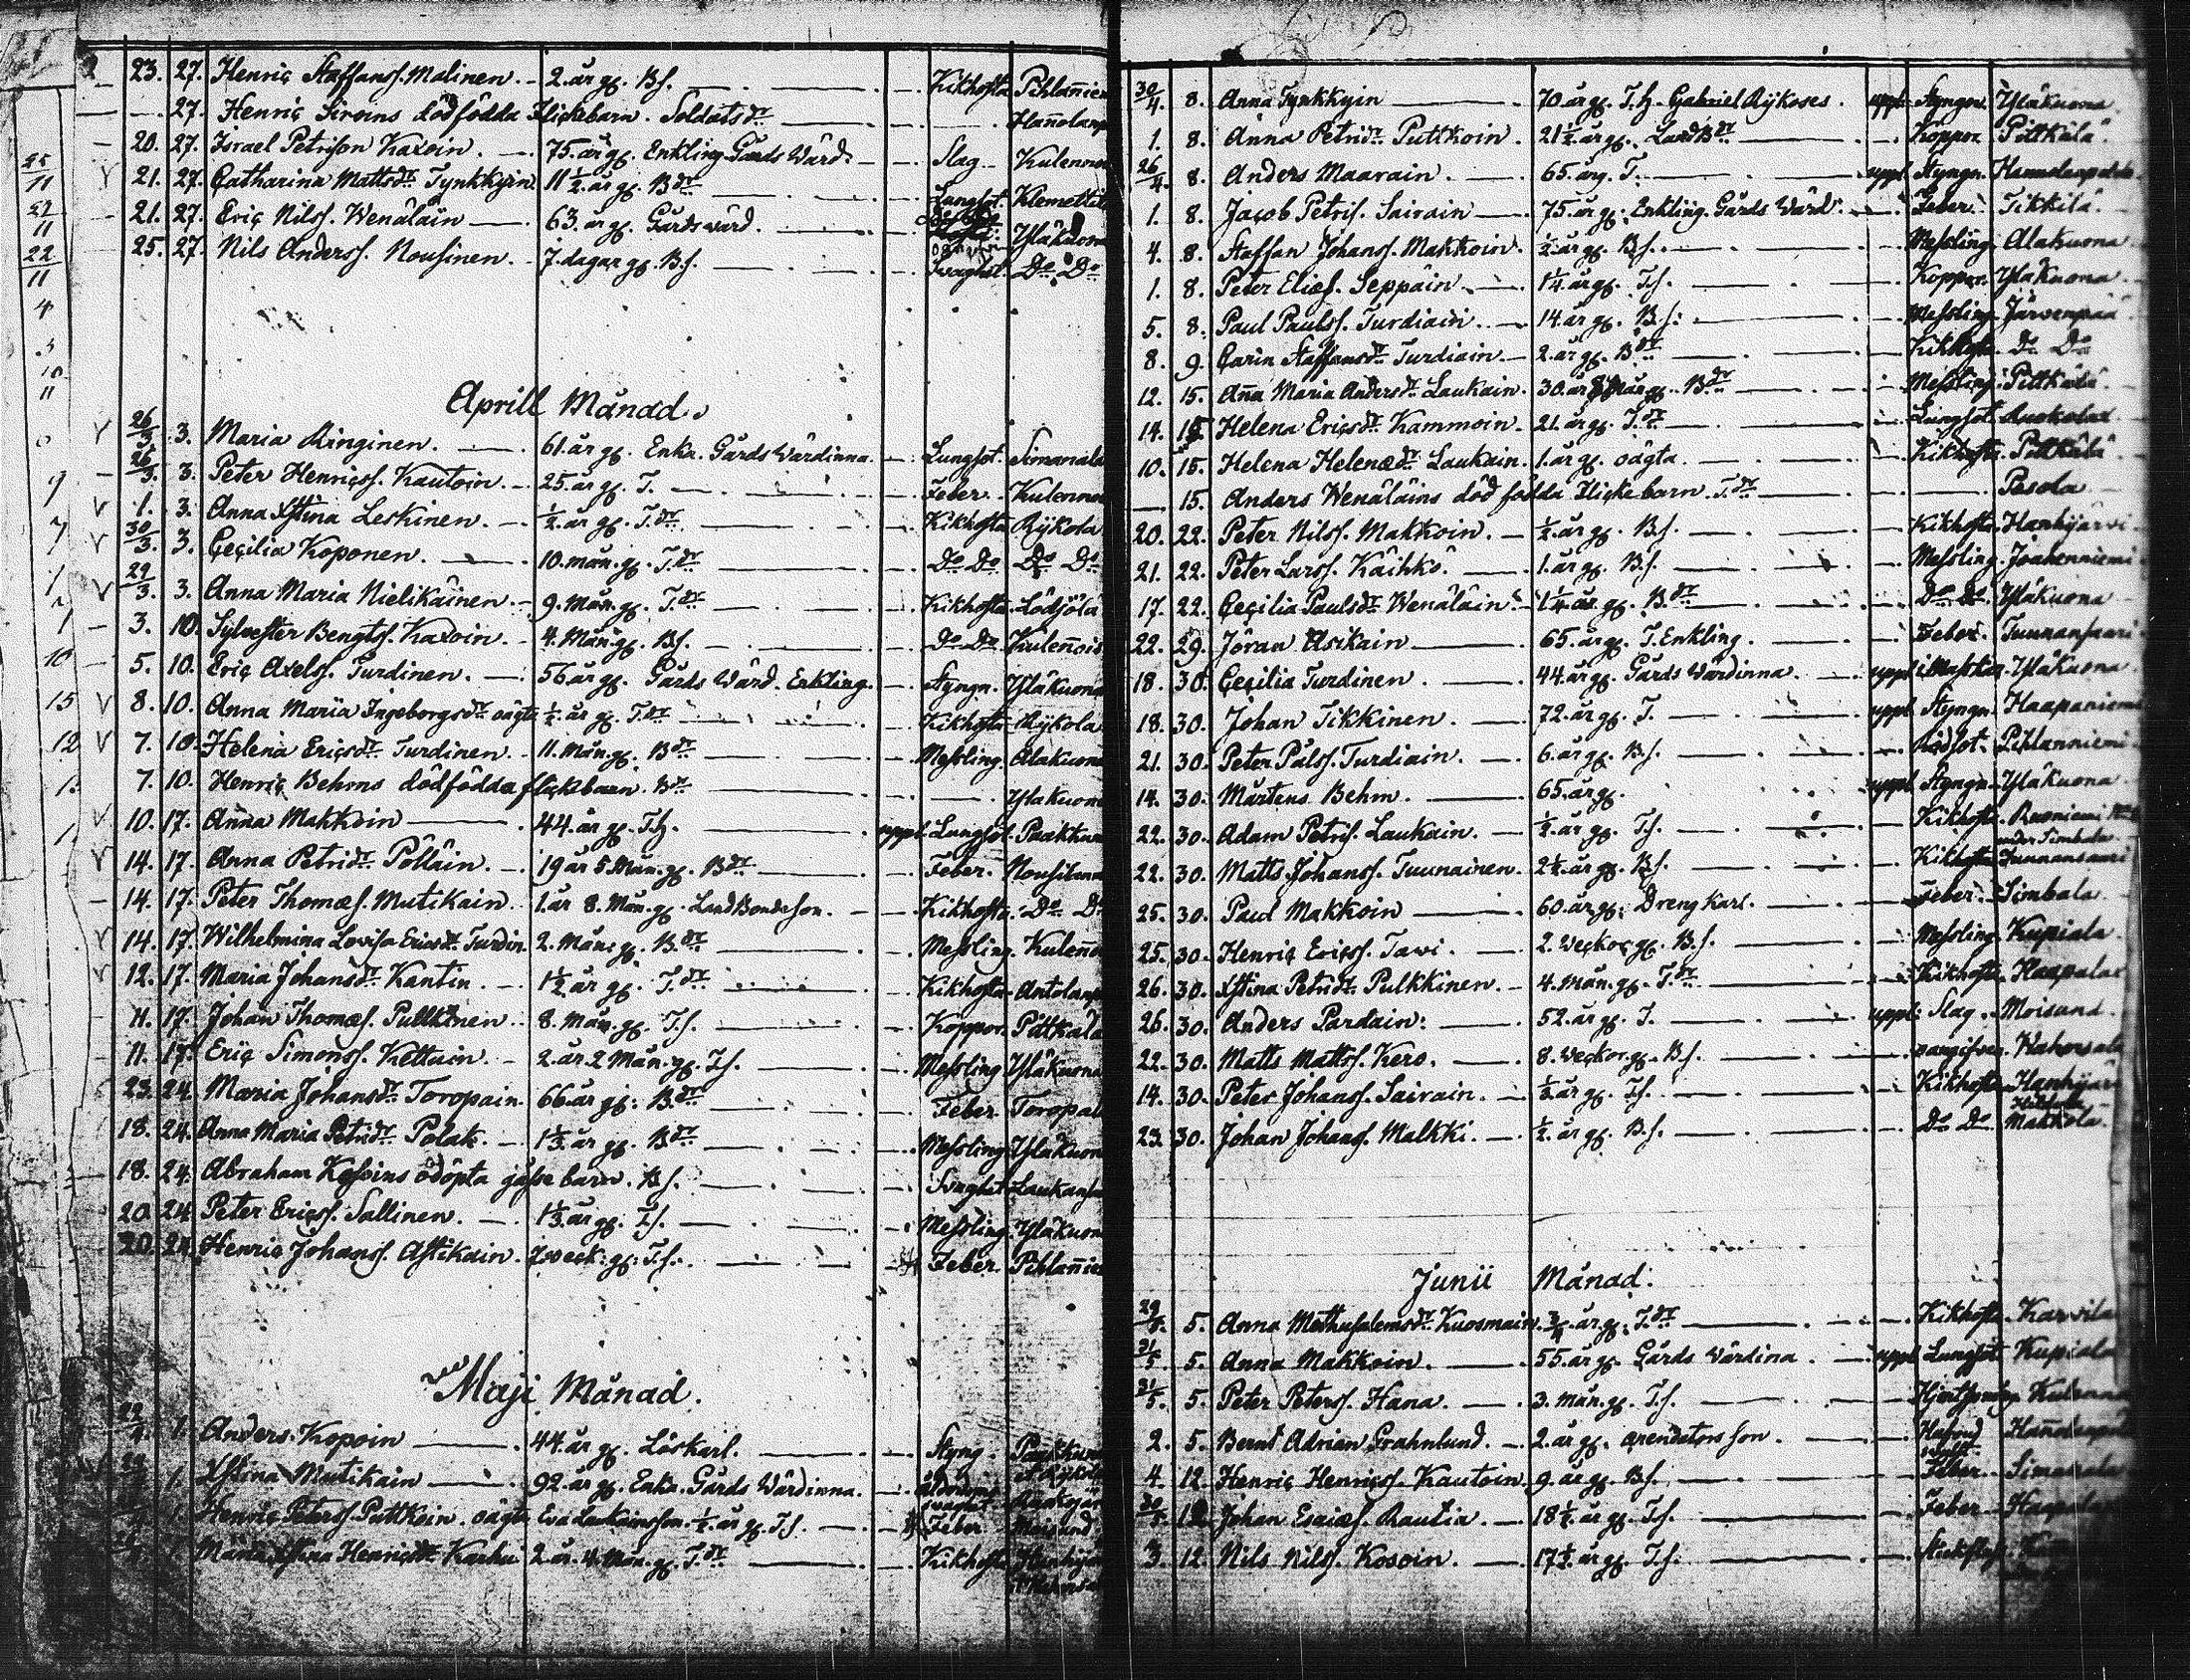 23. 27. Henric Staffanss. Malinen. 2. år gl. Bs. Kikhosta Pihlañien
27. Henric Siroins dödfödda Flickebarn. Soldats dr Hañolanp
20. 27. Israel Petrison Kaxoin. 75. år gl. Enkling Gårds Wärd. Slag Kulenno
21. 27. Catharina Mattsdr Tynkkyin 11 1/2. år gl. Bdr Lungsot. Klemettil
21. 27. Eric Nilss. Wenäläin 63. år gl. Gårdswärd. Yläkuona
25. 27. Nils Anderss. Nousinen. 7. dagar gl. B.s. Swaghet. Do Do
Aprill Månad.
26/3 3. Maria Ringinen. 61. år gl. Enka. Gårds Wärdinna. Lungsot. Simanala
26/3. 3. Peter Henricss. Kautoin. 25. år gl. T. Feber. Kulenno
1. 3. Anna Xstina Leskinen. 1/2. år gl. T.dr Kikhosta Rÿkola
30/3. 3. Cecilia Koponen. 10. mån. gl. T.dr Do Do Do Do
29/3. 3. Anna Maria Nielikäinen. 9. Mån. gl. T.dr Kikhosta Lödjölä
3. 10. Sylvester Bengtss. Kaxoin. 4. Mån. gl. Bs. Do Do Kuleñois
5. 10. Eric Axelss. Turdinen. 56 år gl. Gårds Wärd. Enkling. Styngn. Yläkuona
8. 10. Anna Maria Ingeborgsdr oägta 1/2. år gl. T.dr Kikhosta Rÿkola
7. 10. Helena Ericsdr Turdinen. 11. Mån. gl. Bdr Messling. Alakuona
7. 10. Henric Behms dödfödda flickbarn. Bdr Yläkuona
10. 17. Anna Makkoin 44. år gl. T.h. uppl. Lungsot. Paakkun
14. 17. Anna Petridr Pölläin. 19 år 5. Mån. gl. Bdr Feber. Nousiluna
14. 17. Peter Thomæs. Mutikain. 1. år 8. Mån. gl. LandBondeson. Kikhosta. Do Do
14. 17. Wilhelmina Lovisa Ericsdr Turdin. 2. Mån. gl. Bdr Messling. Kuleño
12. 17. Maria Johansdr Kantin. 1 1/2 år gl. T.dr Kikhosta Antolanp
11. 17. Johan Thomæs. Pullkinen. 8. Mån. gl. T.s. Koppor. Pittkälä
11. 17. Eric Simonss. Kettuin. 2. år 2 Mån. gl. T.s. Messling Yläkuona
23. 24. Maria Johansdr Toropain. 66. år gl. Bdr Feber Toropal
18. 24. Anna Maria Petridr Polak. 1 1/3. år gl. Bdr Messling Yläkuon
18. 24. Abraham Kessins odöpta gåsse barn. B.s. Swaghet Laukans
20. 24. Peter Ericss. Sallinen. 1 1/3. år gl. T.s. Messling. Yläkuon
20. 24. Henric Johanss. Astikain. 7. weck. gl. T.s. Feber. Pihlañie
Maji Månad.
29/4 1. Anders Kopoin 44. år gl. Löskarl. Styng.
1. Xstina Mutikain 92. år gl. Enka. Gårds Wärdinna.
1. Henric Peterss. Puttkoin. oägta Eva Laukainsson. 1/2. år gl. T.s. Feber Moisand
Maria Xstina Henricsdr Karhu 2. år. 4. Mån. gl. T.dr Kikhosta
30/4. 8. Anna Tynkkyin 70. år gl. T.h. Gabriel Rÿköses. uppl. Styngn. Yläkuona
1. 8. Anna Petridr Puttkoin. 21 1/2. år gl. LandBdr Koppor Pittkälä
26/4. 8. Anders Maarain. 65. år gl. T. uppl. Styngn.
1. 8. Jacob Petris. Sairain 75. år gl. Enkling. Gårds Wärd. Feber. Tikkilä
4. 8. Staffan Johanss. Makkoin. 1/2. år gl. B.s. Messling. Alakuona
1. 8. Peter Eliæs. Seppäin. 1 1/4. år gl. T.s. Koppor. Yläkuona
5. 8. Paul Paulss. Turdiain. 14. år gl. B.s. Messling. Järvenpää
8. 9. Carin Staffansdr Turdiain. 2. år gl. Bdr Kikhosta. Do Do
12. 15. Anna Maria Andersdr Laukain. 30. år Mån gl. Bdr Messling. Pittkälä
14. 15. Helena Ericsdr Kammoin. 21. år gl. T.dr Lungsot.
10. 15. Helena Helenædr Laukain. 1. år gl. oägta. Kikhosta Pittkälä
15. Anders Wenäläins död födda Flickebarn. T.dr Pesola
20. 22. Peter Nilss. Makkoin. 1/2. år gl. B.s. Kikhosta. Hanhijärvi
21. 22. Peter Larss. Käihkö. 1. år gl. B.s. Messling. Joukenniemi
17. 22. Cecilia Paulsdr Wenäläin. 1 1/4 år. gl. Bdr Do Do Yläkuona
22. 29. Jöran Asikain 65. år gl. T. Enkling. Feber. Tuunansaari
18. 30. Cecilia Turdinen. 44. år gl. Gårds Wärdinna. uppl. Yläkuona
18. 30. Johan Tikkinen. 72. år gl. T. uppl. Styngn. Haapaniemi
21. 30. Peter Pålss. Turdiain. 6. år gl. B.s. Pihlanniemi
14. 30. Mårtens Behm. 65. år gl. uppl. Styngn. Yläkuona
22. 30. Adam Petris. Laukain. 1/2. år gl. T.s. Kikhosta.
22. 30. Matts Johanss. Tuunainen. 2 1/2. år gl. B.s. Kikhosta Tuunansaari
25. 30. Paul Makkoin 60. år gl. Dreng Karl. Feber. Simbala
25. 30. Henric Ericss. Tawi. 2. Weckor gl. B.s. Messling. Kupiala
26. 30. Xstina Petridr Pulkkinen. 4. Mån. gl. T.dr Kikhosta Haapala
26. 30. Anders Pardain. 52. år gl. T. uppl. Slag. Moisand.
22. 30. Matts Mattss. Kero. 8. Weckor gl. B.s.
14. 30. Peter Johanss. Sairain. 1/2. år gl. T.s. Kikhosta Hanhijärv
23. 30. Johan Johanss. Malkki. 1/2. år gl. B.s. Do Do Makkola
Junii Månad.
29/5. 5. Anna Methusalemsdr Kuosmain. 3/4. år gl. T.dr Kikhosta Karvila
31/5. 5. Anna Makkoin. 55. år gl. Gårds Wärdina. uppl. Lungsot Kupiala
31/5. 5. Peter Peterss. Hana. 3. Mån. gl. T.s.
2. 5. Bernt Adrian Grahnlund. 2. år gl. arendators son.
4. 12. Henric Henricss. Kautoin. 9. år gl. B.s. Feber. Simanala
30/5. 12. Johan Esaiæs. Rautia. 18 1/2. år gl. T.s. Feber
3. 12. Nils Nilss. Kosoin. 17 1/2. år gl. T.s.